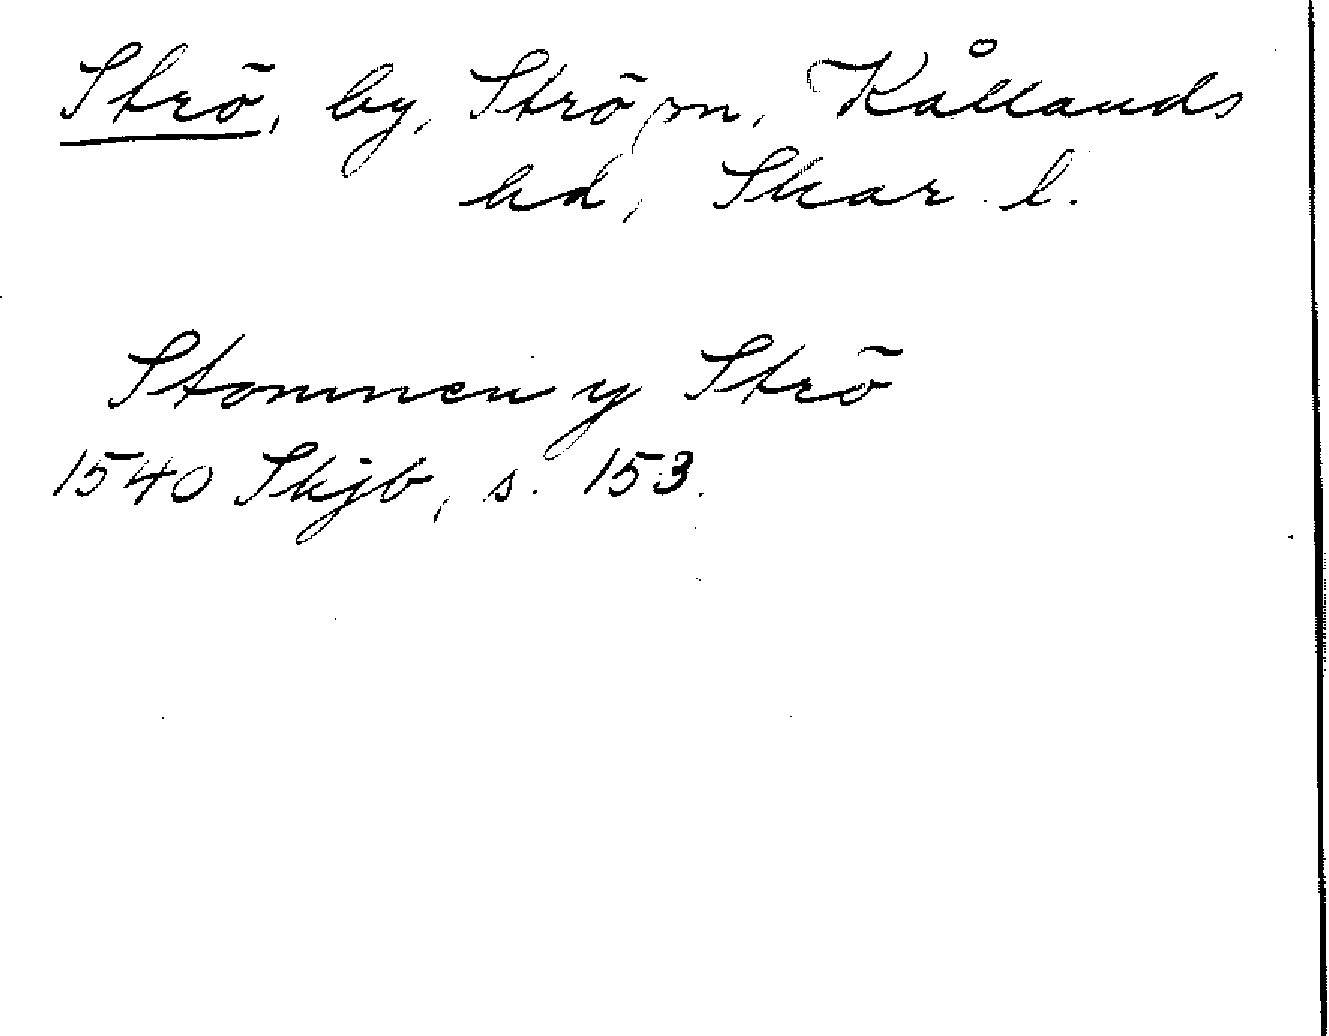 Strö, by, Strö sn, Kållands
hd, Skar. l.
Stommen y Strö
1540 Skjb, s. 153.